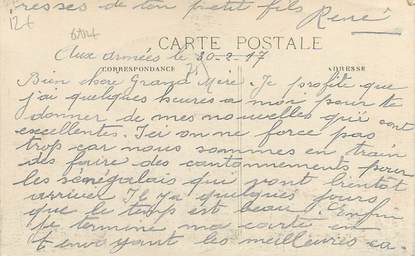 resses de ton petit fils
René
12t
CARTE POSTALE
Aux armées le 20-2-17
CORRESPONDANCE
ADRESSE
Bien chère Grand Mère. Je profite que
j'ai quelques heures a moi pour te
donner de mes nouvelles qui sont
excellentes. Ici on ne force pas
trop car nous sommes en train
des faire des cantonnements pour
les sénégalais qui vont bientôt
arriver Il y a quelques jours
que le temps est beau. Enfin
je termine ma carte en
t'envoyant les meilleures ca-